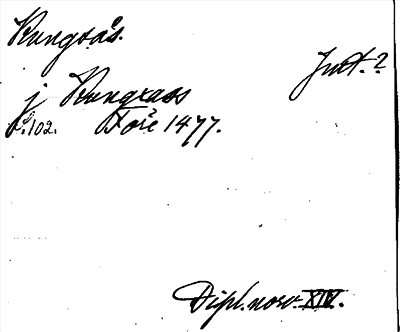 Kungsås.
Jmt.?
j Kungxass
s. 102. Före 1477.
Dipl. norv. XIV.